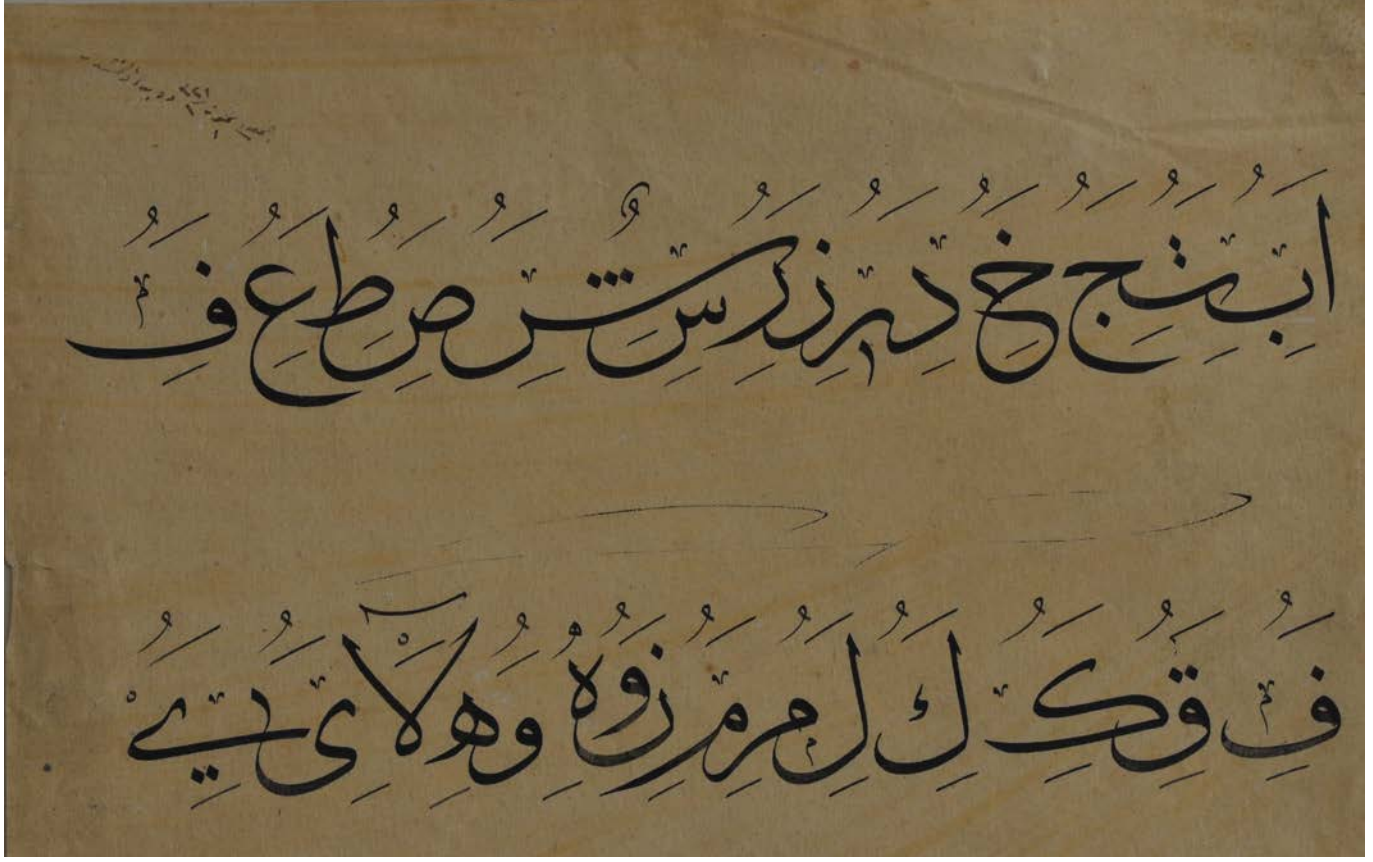 اَبِ تِجَُ خَُِ دَُِ رَُِ زَُِ رَُِ سَُِ شَُِ صَُِ طَُِ عَُِ فَُِ
فَُِ قَُِ كَُِ كَُِ لَُِ مَُِ مَُِ نَُِ وَُ هُ وَُ هِ لَآ ىَُِ يَُِ